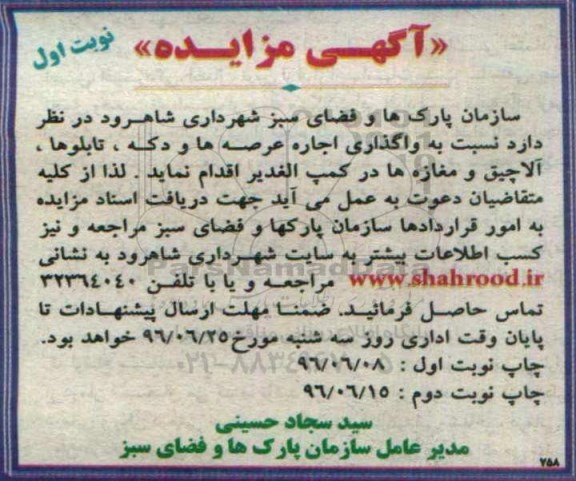 «آگهی مزایده»
نوبت اول
سازمان پارک ها و فضای سبز شهرداری شاهرود در نظر
دارد نسبت به واگذاری اجاره عرصه ها و دکه ، تابلوها ،
آلاچیق و مغازه ها در کمپ الغدیر اقدام نماید . لذا از کلیه
متقاضیان دعوت به عمل می آید جهت دریافت اسناد مزایده
به امور قراردادها سازمان پارکها و فضای سبز مراجعه و نیز
کسب اطلاعات بیشتر به سایت شهرداری شاهرود به نشانی
www.shahrood.ir مراجعه و یا با تلفن ۳۲۳۶۴۰۴۰
تماس حاصل فرمائید. ضمنا مهلت ارسال پیشنهادات تا
پایان وقت اداری روز سه شنبه مورخ ۹۶/۰۶/۲۵ خواهد بود.
چاپ نوبت اول : ۹۶/۰۶/۰۸
چاپ نوبت دوم : ۹۶/۰۶/۱۵
سید سجاد حسینی
مدیر عامل سازمان پارک ها و فضای سبز
۷۵۸
ParsNamadData